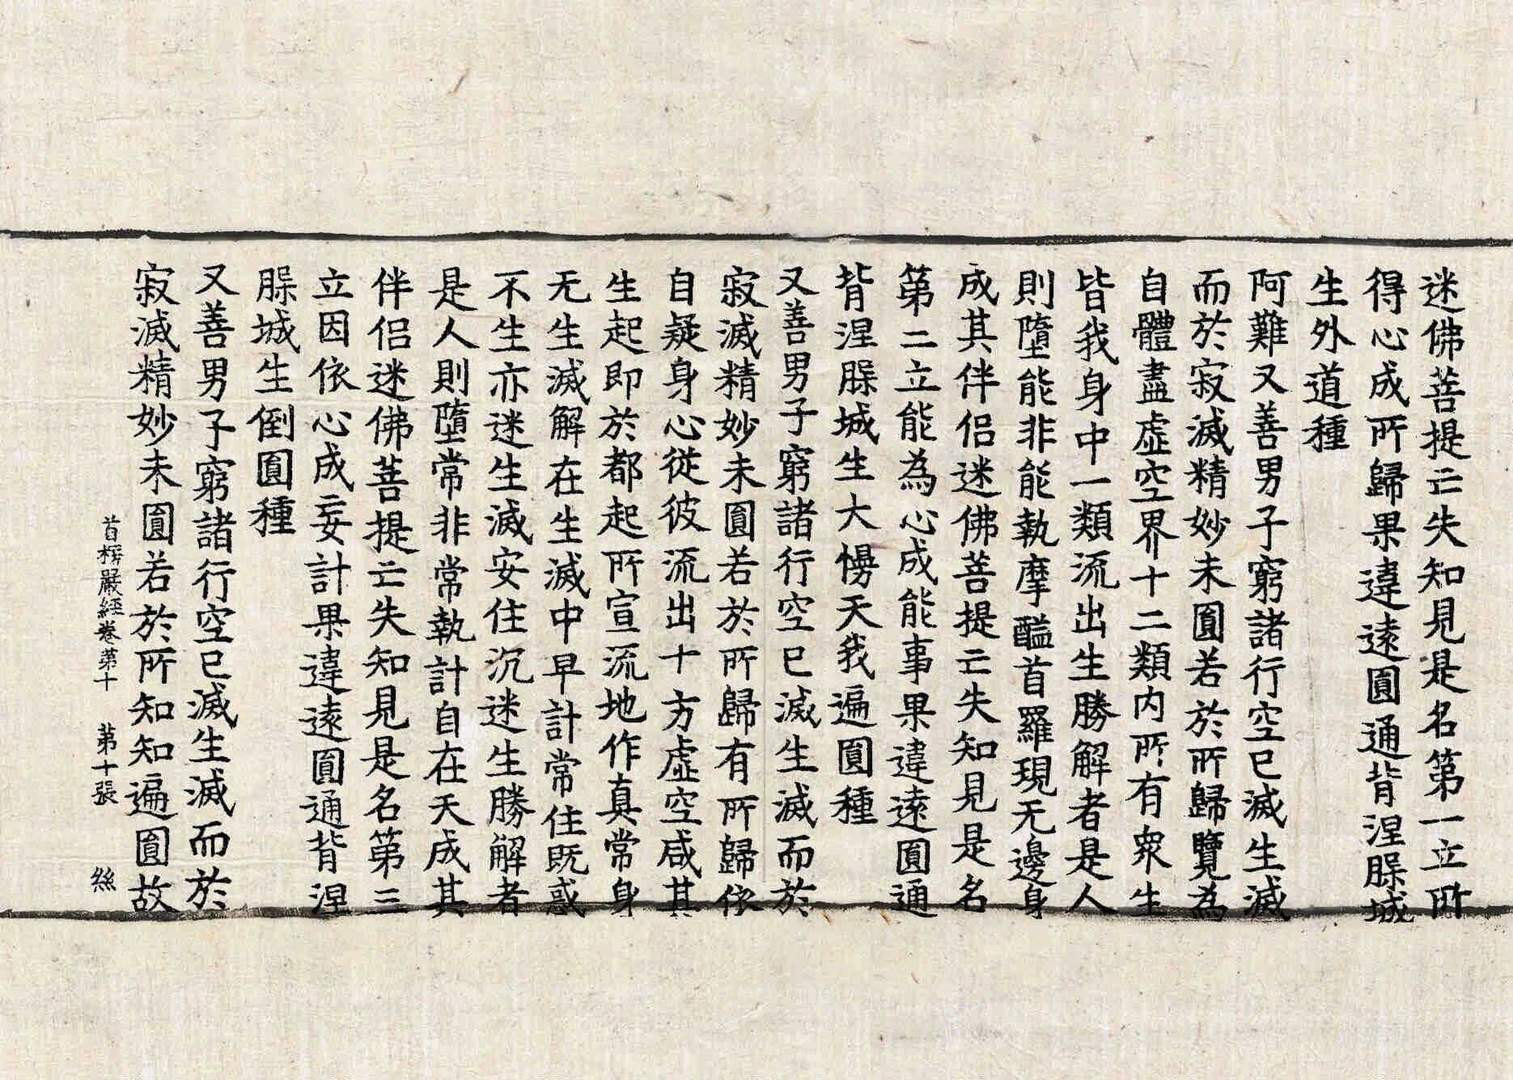 迷佛菩提亡失知見是名第一立所
得心成所歸果違遠圓通背涅槃城
生外道種
阿難又善男子窮諸行空已滅生滅
而於寂滅精妙未圓若於所歸覽為
自體盡虛空界十二類內所有衆生
皆我身中一類流出生勝解者是人
則墮能非能執摩醯首羅現无邊身
成其伴侶迷佛菩提亡失知見是名
第二立能為心成能事果違遠圓通
背涅槃城生大慢天我遍圓種
又善男子窮諸行空已滅生滅而於
寂滅精妙未圓若於所歸有所歸依
自疑身心從彼流出十方虛空咸其
生起即於都起所宣流地作真常身
无生滅解在生滅中早計常住既惑
不生亦迷生滅安住沉迷生勝解者
是人則墮常非常執計自在天成其
伴侶迷佛菩提亡失知見是名第三
立因依心成妄計果違遠圓通背涅
槃城生倒圓種
又善男子窮諸行空已滅生滅而於
寂滅精妙未圓若於所知知遍圓故
首楞嚴經卷第十 第十張 絲